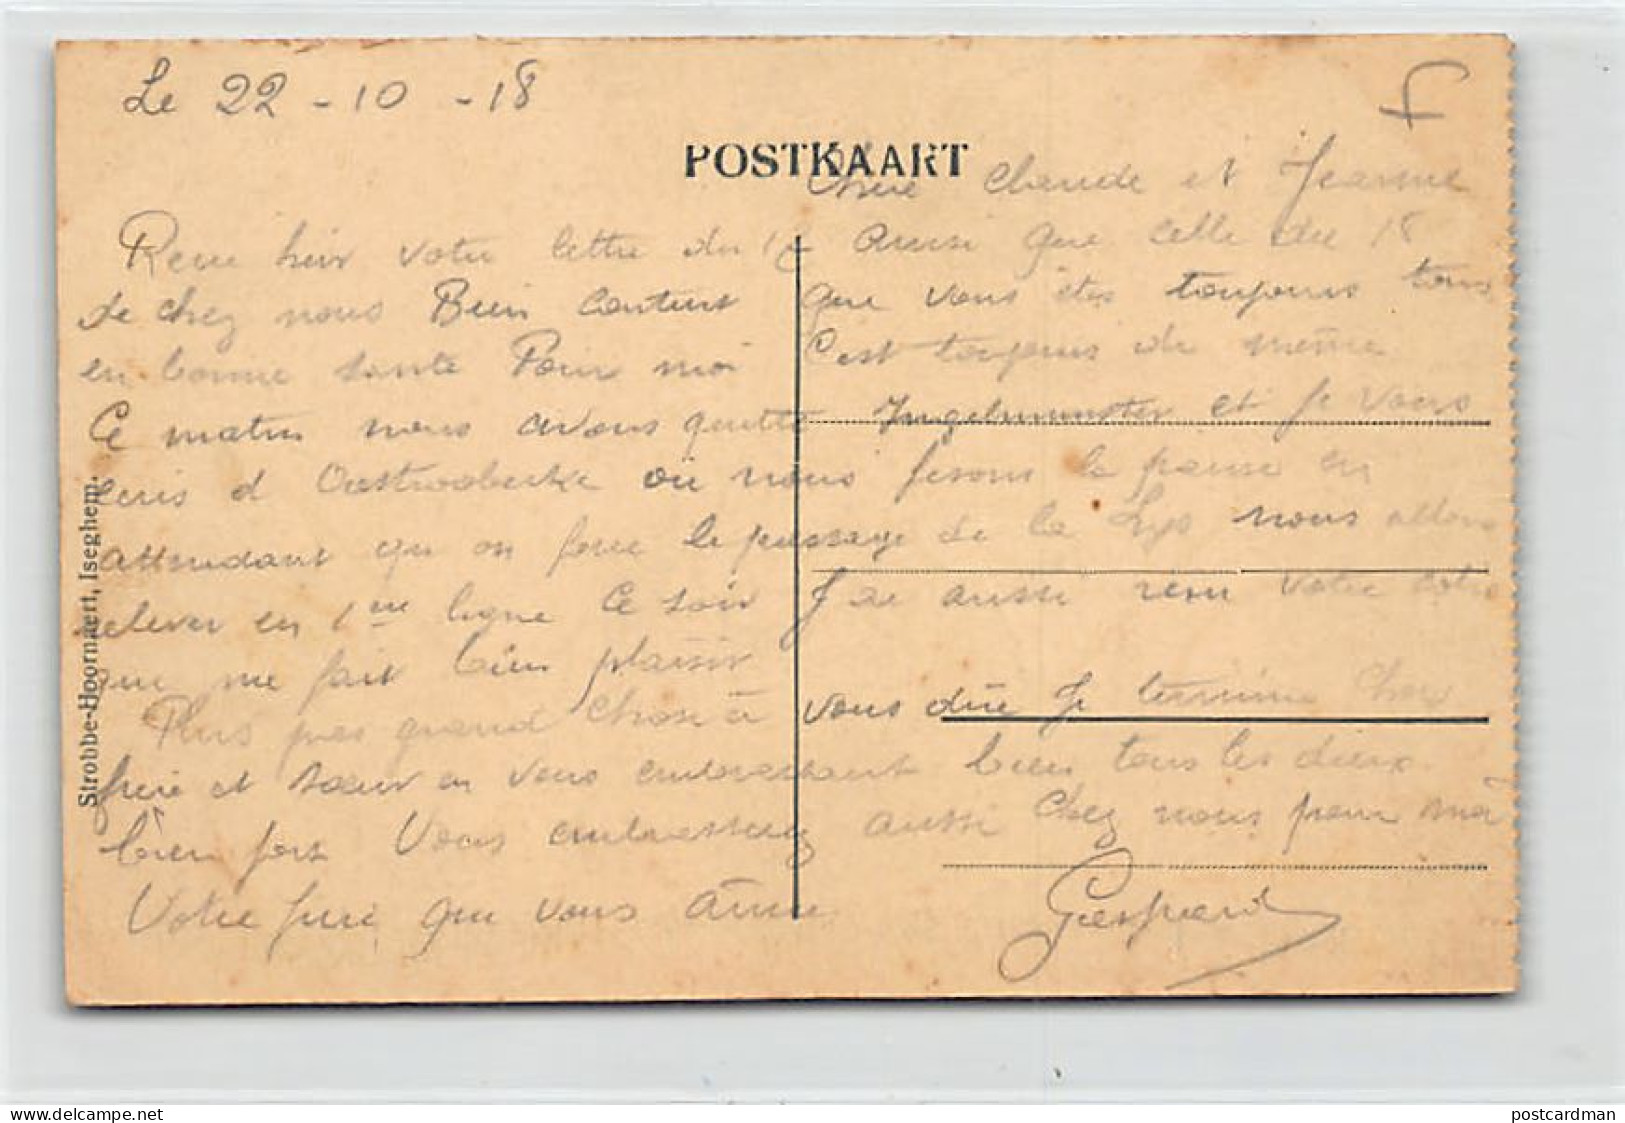 Le 22 - 10 - 18
POSTKAART
Chere Claude et Jeanne
Recu hier votre lettre du 16 Ainsi que celle du 18
de chez nous Bien content que vous êtes toujours tous
en bonne sante Pour moi C'est toujours de même
Ce matin nous avons quitté Ingelmunster et je vous
ecris d Oostroobecke où nous fesons la pause en
attendant qu on force le passage de la Lys nous allons
relever en 1me ligne Ce soir J ai aussi recu votre
que me fait bien plaisir
Plus pas grand chose à vous dire Je termine Cher
frère et sœur en vous embrassant bien tous les deux
bien fort Vous embrasserez aussi chez nous pour moi
Votre frère que vous aime
Gaspard
Strobbe-Hoornaert, Iseghem.
postcardman